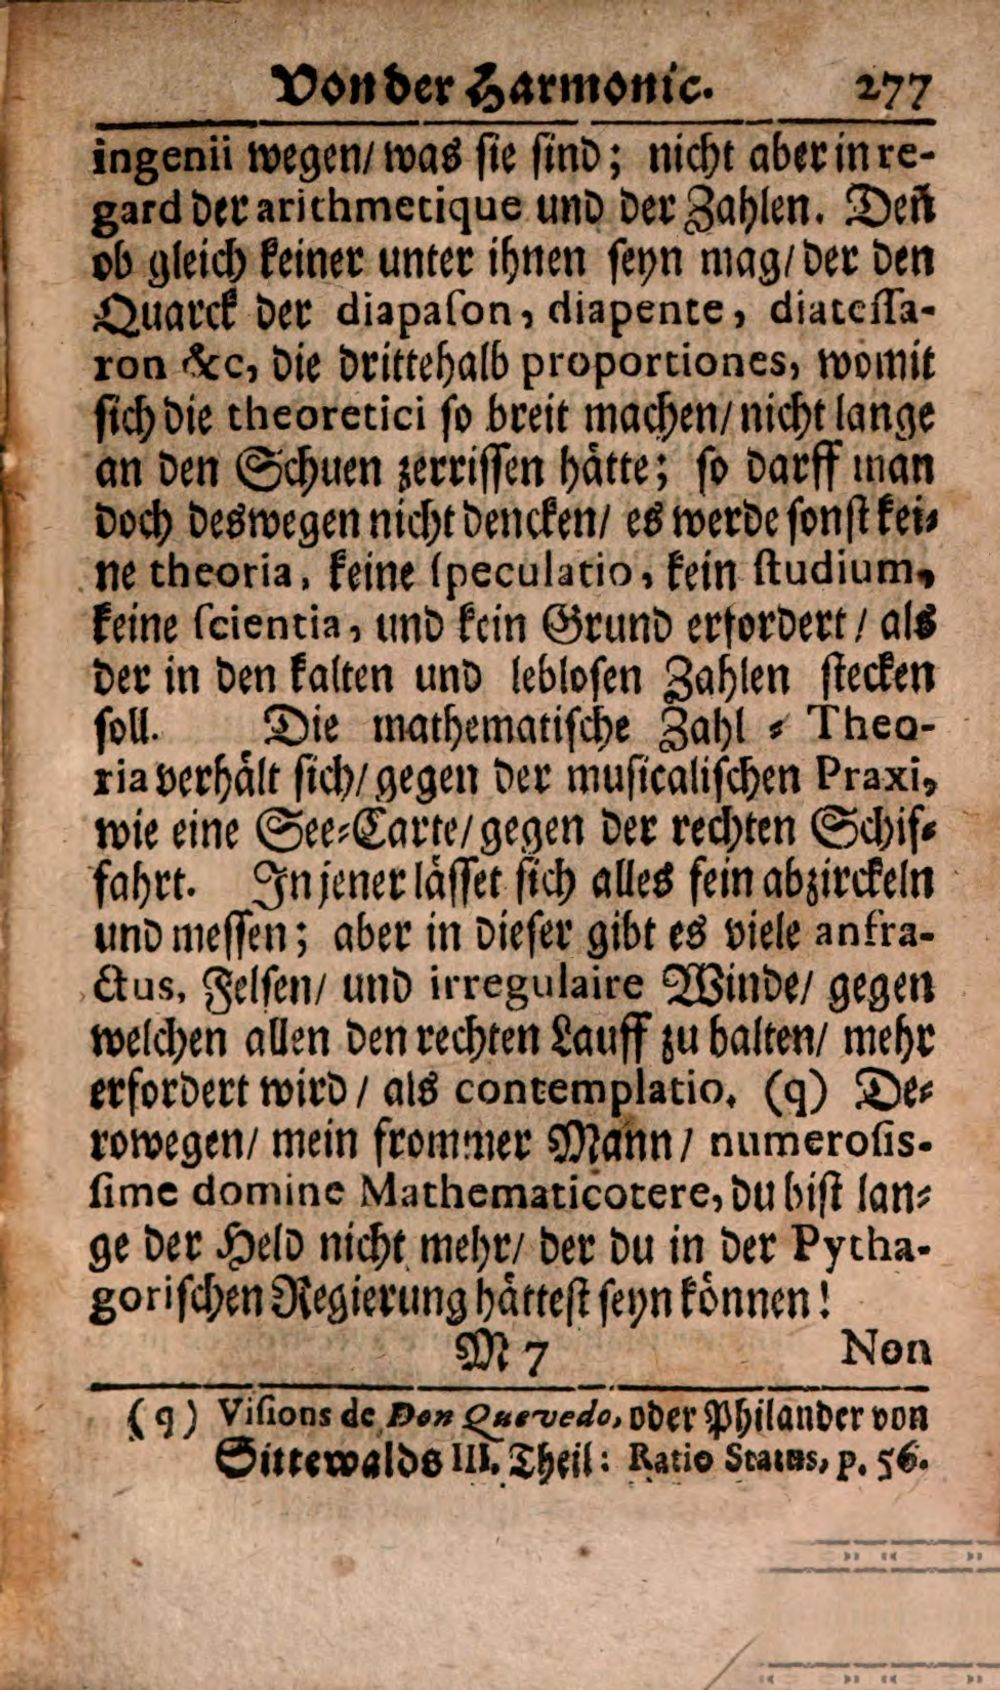 Von der Harmonic. 277
ingenii wegen/ was sie sind; nicht aber in re-
gard der arithmetique und der Zahlen. Deñ
ob gleich keiner unter ihnen seyn mag/ der den
Quarck der diapason, diapente, diatessa-
ron &c, die drittehalb proportiones, womit
sich die theoretici so breit machen/ nicht lange
an den Schuen zerrissen hätte; so darff man
doch deswegen nicht dencken/ es werde sonst kei-
ne theoria, keine speculatio, kein studium,
keine scientia, und kein Grund erfordert / als
der in den kalten und leblosen Zahlen stecken
soll. Die mathematische Zahl - Theo-
ria verhält sich/ gegen der musicalischen Praxi,
wie eine See-Carte/ gegen der rechten Schif-
fahrt. In jener lässet sich alles fein abzirckeln
und messen; aber in dieser gibt es viele anfra-
ctus, Felsen/ und irregulaire Winde/ gegen
welchen allen den rechten Lauff zu halten/ mehr
erfordert wird / als contemplatio. (q) De-
rowegen/ mein frommer Mann / numerosis-
sime domine Mathematicotere, du bist lan-
ge der Held nicht mehr/ der du in der Pytha-
gorischen Regierung hättest seyn können!
M 7 Non
(q) Visions de Don Quevedo, oder Philander von
Sittewalds III. Theil: Ratio Status, p. 56.